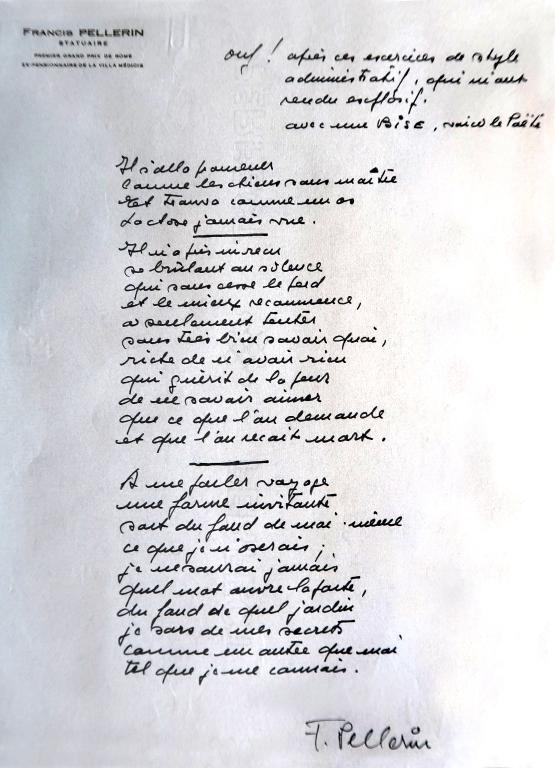 FRANCIS PELLERIN
STATUAIRE
PREMIER GRAND PRIX DE ROME
EX-PENSIONNAIRE DE LA VILLA MÉDICIS
ouf ! après ces exercices de style
administratif, qui m'ont
rendu explosif.
avec une BISE, voici le Poète
Il s'alla promener
comme les chiens sans maître
et trouva comme un os
la chose jamais vue.
Il n'a pris ni reçu
se brûlant au silence
qui sans cesse le perd
et le mieux recommence,
a seulement tenter
sans très bien savoir quoi,
riche de n'avoir rien
qui guérit de la peur
de ne savoir aimer
que ce que l'on demande
et que l'on reçoit mort.
A me parler voyage
une forme invitante
sort du fond de moi-même
ce que je n'oserais ;
je ne saurai jamais
quel mot ouvre la porte,
du fond de quel jardin
je sors de mes secrets
comme un autre que moi
tel que je me connais.
F. Pellerin